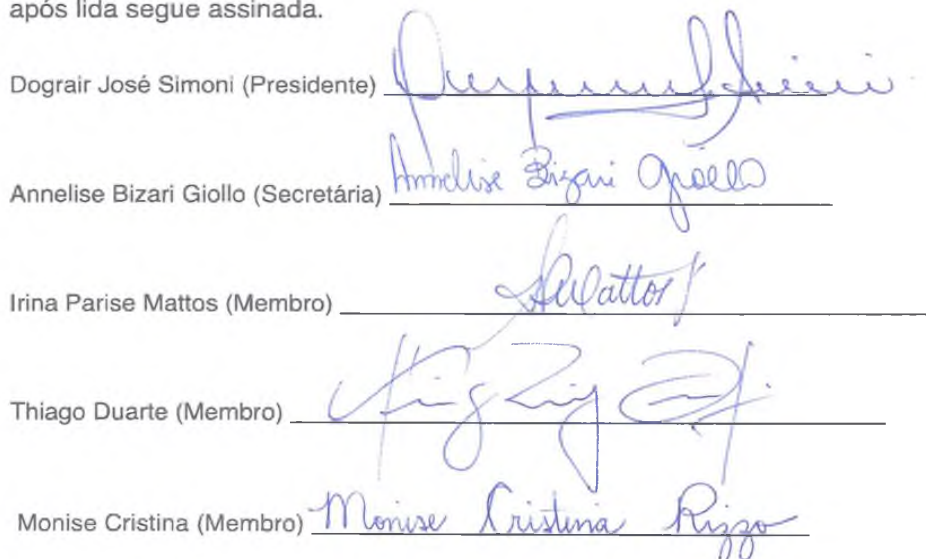 após lida segue assinada.
Dograir José Simoni (Presidente)
Annelise Bizari Giollo (Secretária) Annelise Bizari Giollo
Irina Parise Mattos (Membro) Mattos
Thiago Duarte (Membro)
Monise Cristina (Membro) Monise Cristina Rizzo